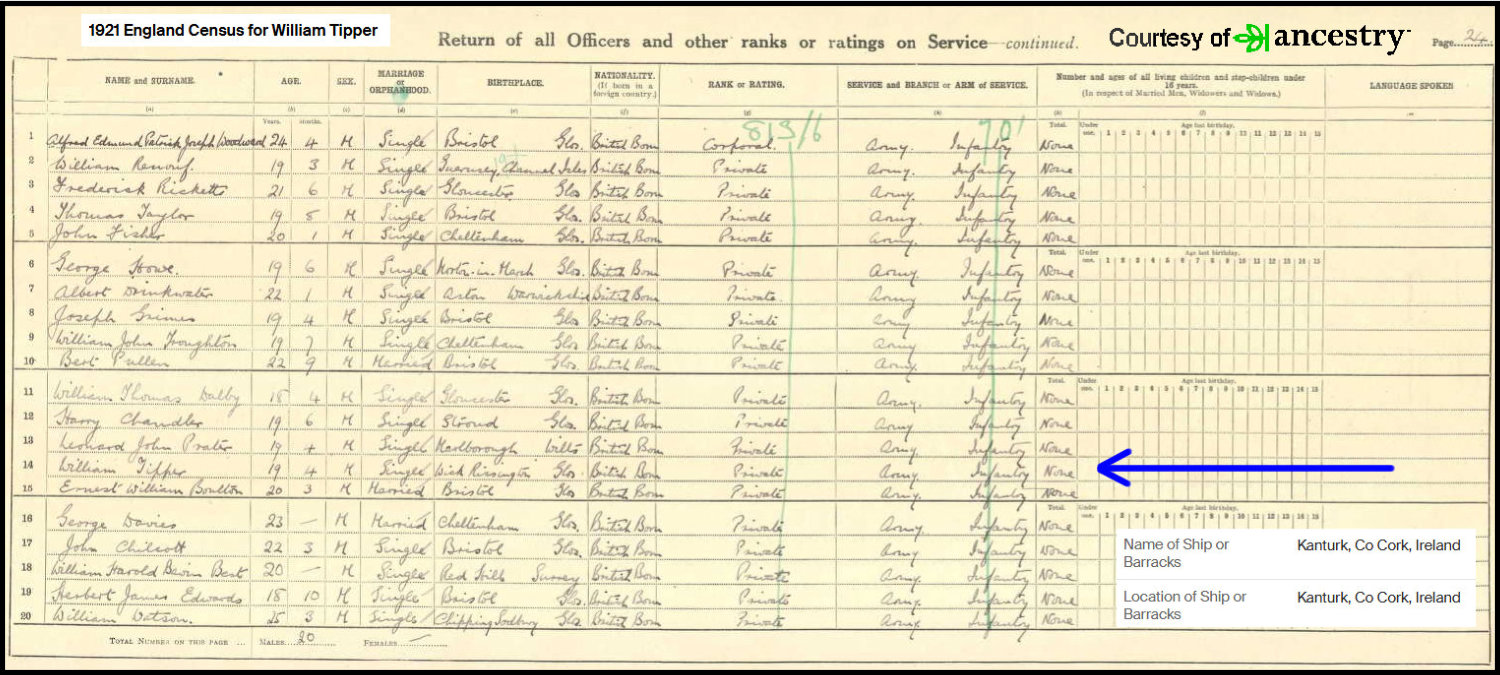 1921 England Census for William Tipper
Return of all Officers and other ranks or ratings on Service—continued.
Courtesy of ancestry
Page 24
NAME and SURNAME. AGE. SEX. MARRIAGE or ORPHANHOOD. BIRTHPLACE. NATIONALITY. (If born in a foreign country.) RANK or RATING. SERVICE and BRANCH or ARM of SERVICE. Number and ages of all living children and step-children under 16 years. (In respect of Married Men, Widowers and Widows.) LANGUAGE SPOKEN
(a) (b) (c) (d) (e) (f) (g) (h)
Years. Months. Total. Under one. Age last birthday. 1 2 3 4 5 6 7 8 9 10 11 12 13 14 15
813/6 701
1 Alfred Edmund Patrick Joseph Woodward 24 4 M Single Bristol Glos. British Born Corporal. Army. Infantry None
2 William Renouf. 19 3 M Single Guernsey, Channel Isles British Born Private Army. Infantry None
3 Frederick Ricketts 21 6 M Single Gloucester Glos British Born Private Army. Infantry None
4 Thomas Taylor 19 8 M Single Bristol Glos. British Born Private Army. Infantry None
5 John Fisher 20 1 M Single Cheltenham Glos. British Born Private Army. Infantry None
Total. Under one. Age last birthday. 1 2 3 4 5 6 7 8 9 10 11 12 13 14 15
6 George 19 6 M Single Glos. British Born Private Army Infantry None
7 Albert Drinkwater 22 1 M Single Aston Warwickshire British Born Private Army Infantry None
8 Joseph Grimes 19 4 M Single Bristol Glos British Born Private Army Infantry None
9 William John Troughton 19 7 M Single Cheltenham Glos British Born Private Army Infantry None
10 Bert Pullen 22 9 M Married Bristol Glos. British Born Private Army. Infantry None
Total. Under one. Age last birthday. 1 2 3 4 5 6 7 8 9 10 11 12 13 14 15
11 William Thomas Dalby 18 4 M Single Gloucester Glos. British Born Private Army. Infantry None
12 Harry Chandler 19 6 M Single Stroud Glos. British Born Private Army Infantry None
13 Leonard John Prater 19 M Single Marlborough Wilts British Born Private Army Infantry None
14 William Tipper 19 4 M Single Wick Rissington Glos. British Born Private Army Infantry None
15 Ernest William Boulton 20 3 M Married Bristol Glos British Born Private Army. Infantry None
Total. Under one. Age last birthday. 1 2 3 4 5 6 7 8 9 10 11 12 13 14 15
16 George Davies 23 — M Married Cheltenham Glos. British Born Private Army Infantry None
17 John Chilcott 22 3 M Single Bristol Glos. British Born Private Army Infantry None
18 William Harold Best 20 — M Single Red Hill Surrey British Born Private Army. Infantry None
19 Herbert James Edwards 18 10 M Single Bristol Glos. British Born Private Army. Infantry None
20 William Watson. 25 3 M Single Chipping Sodbury Glos. British Born Private Army Infantry None
TOTAL NUMBER ON THIS PAGE ... MALES 20 FEMALES —
Name of Ship or Barracks Kanturk, Co Cork, Ireland
Location of Ship or Barracks Kanturk, Co Cork, Ireland